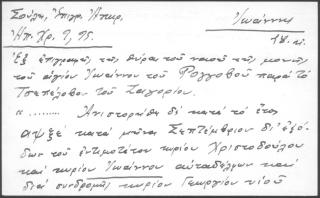 Σούλη, Ἐπιγρ. Ἠπειρ. Ἰωάννης
Ἠπ. Χρ. 9, 95. 18 αἰ.
Ἐξ ἐπιγραφῆς τῆς θύρας τοῦ ναοῦ τῆς μονῆς
τοῦ ἁγίου Ἰωάννου τοῦ Ρογγοβοῦ παρὰ τὸ
Τσεπέλοβον τοῦ Ζαγορίου.
"........ Ἀνιστορήθη δὲ κατὰ τὸ ἔτος
αψξε κατὰ μῆνα Σεπτέμβριον δι' ἐξό-
δων τοῦ ἐντιμοτάτου κυρίου Χριστοδούλου
καὶ κυρίου Ἰωάννου αὐταδέλφων καὶ
διὰ συνδρομῆς κυρίου Γεωργίου υἱοῦ